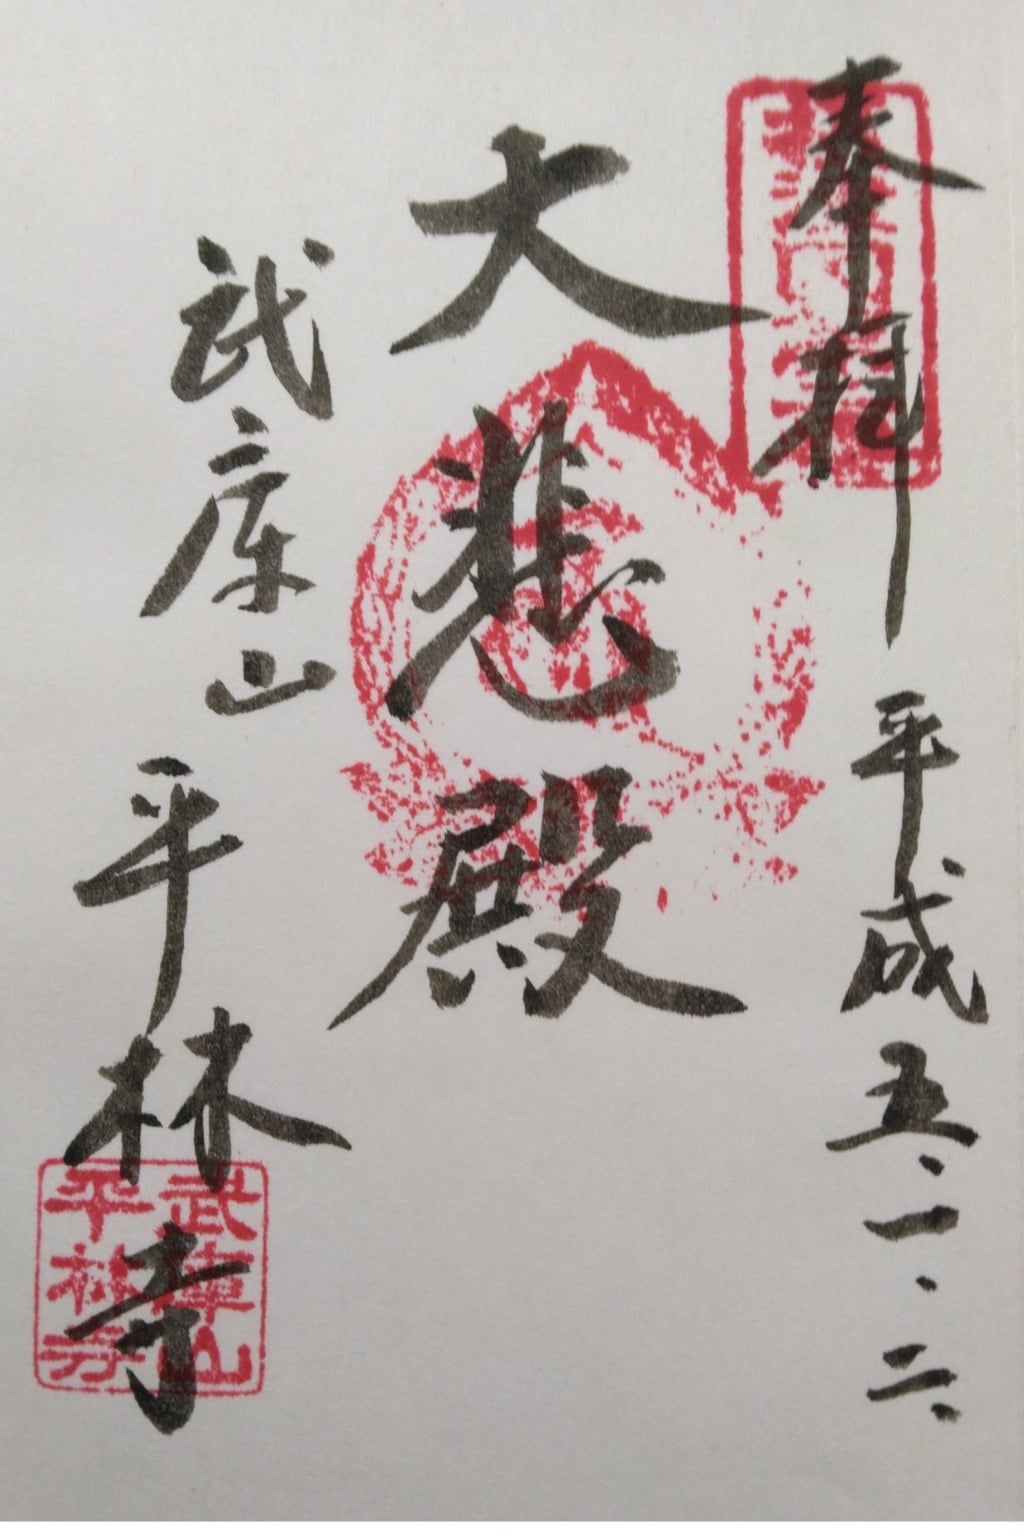 奉拝 平成五・一・二
大悲殿
武庫山 平林寺
武庫山
平林寺